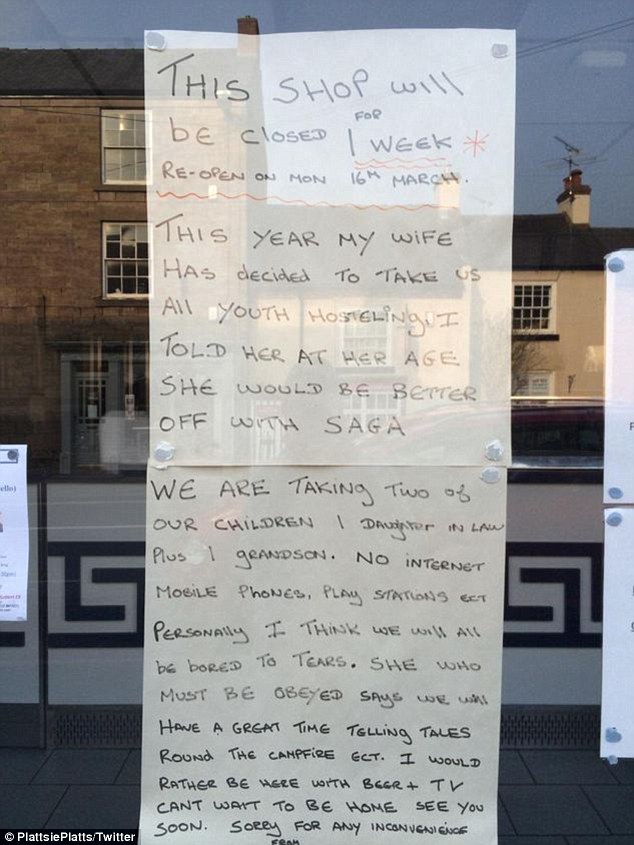 THIS SHOP WILL
be CLOSED FOR 1 WEEK *
RE-OPEN ON MON 16TH MARCH.
THIS YEAR MY WIFE
HAS decided TO TAKE US
All YOUTH HOSTELING, I
TOLD HER AT HER AGE
SHE WOULD BE BETTER
OFF WITH SAGA
WE ARE TAKING TWO of
OUR CHILDREN 1 DAUGHTER IN LAW
Plus 1 GRANDSON. NO INTERNET
MOBILE PHONES, PLAY STATIONS ECT
PERSONALLY I THINK WE WILL All
be BORED TO TEARS. SHE WHO
MUST BE OBEYED SAYS WE WILL
HAVE A GREAT TIME TELLING TALES
ROUND THE CAMPFIRE ECT. I WOULD
RATHER BE HERE WITH BEER + TV
CANT WAIT TO BE HOME SEE YOU
SOON. SORRY FOR ANY INCONVENIENCE
FROM
© PlattsiePlatts/Twitter